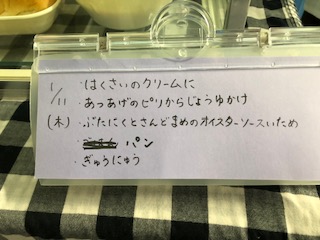 1/11 ・はくさいのクリームに
・あつあげのピリからじょうゆかけ
(木)・ぶたにくとさんどまめのオイスターソースいため
パン
・ぎゅうにゅう